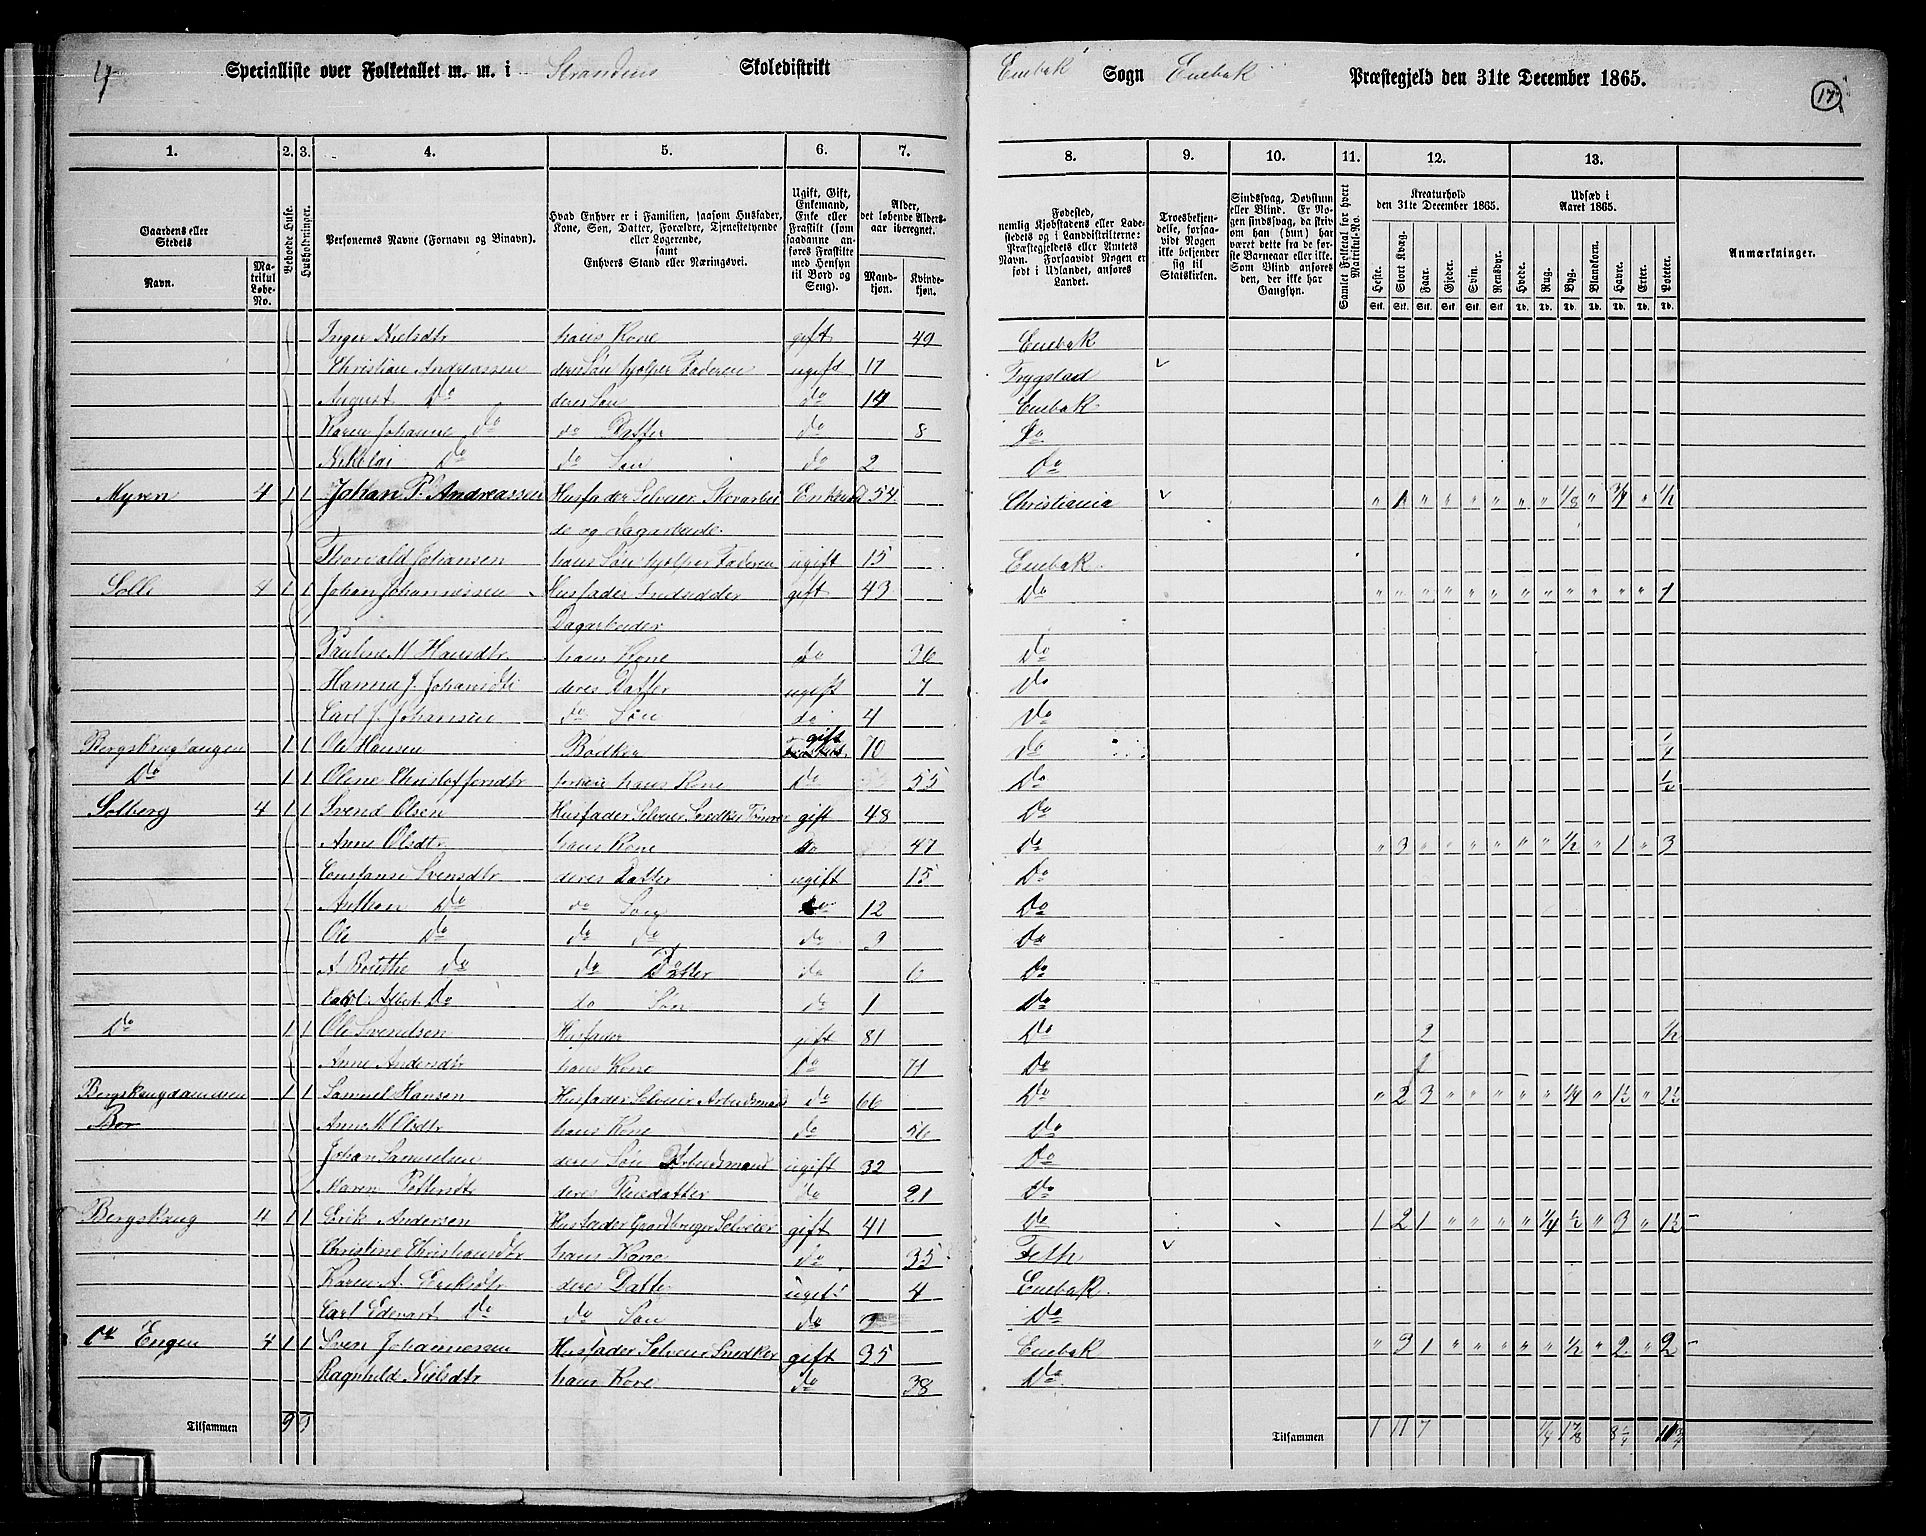 4
Specialliste over Folketallet m. m. i Strandens Skoledistrikt
Enebak Sogn Enebak Præstegjeld den 31te December 1865.
17
1. 2. 3. 4. 5. 6. 7.
8. 9. 10. 11. 12. 13.
Gaardens eller Stedets
Navn.
Matrikul Løbe-No.
Beboede Huse.
Husholdninger.
Personernes Navne (Fornavn og Binavn).
Hvad Enhver er i Familien, saasom Husfader, Kone, Søn, Datter, Forældre, Tjenestetyende eller Logerende, samt Enhvers Stand eller Næringsvei.
Ugift, Gift, Enkemand, Enke eller Fraskilt (som saadanne anføres Fraskilte med Hensyn til Bord og Seng).
Alder, det løbende Aldersaar iberegnet.
Mandkjøn.
Kvindekjøn.
Fødested, nemlig Kjøbstadens eller Ladestedets og i Landdistrikterne: Præstegjeldets eller Amtets Navn. Forsaavidt Nogen er født i Udlandet, anføres Landet.
Troesbekjendelse, forsaavidt Nogen ikke bekjender sig til Statskirken.
Sindssvag, Døvstum eller Blind. Er Nogen sindssvag, da skriv om han (hun) har været dette fra de første Barneaar eller ikke. Som Blind anføres den, der ikke har Gangsyn.
Samlet Folketal for hvert Matrikul-No.
Kreaturhold den 31te December 1865.
Heste. Stort Kvæg. Faar. Gjeder. Svin. Rensdyr.
Stk. Stk. Stk. Stk. Stk. Stk.
Udsæd i Aaret 1865.
Hvede. Rug. Byg. Blandkorn. Havre. Erter. Poteter.
Td. Td. Td. Td. Td. Td. Td.
Anmærkninger.
Inger Nielsdtr hans Kone gift 49 Enebak
Christian Andreassen deres Søn hjelper Faderen ugift 17 Trygstad
August Do deres Søn do 14 Enebak
Karen Johanne do do Datter do 8 Do
Nikolai Do do Søn do 2 Do
Myren 4 1 1 Johan P. Andreassen Husfader Selveier Skovarbei Enkem 54 Christiania " 1 " " " " " " 1/8 " 3/4 " 1/2
de og Dagarbeide
Thorvald Johansen hans Søn hjelper Faderen ugift 15 Enebak
Solli 4 1 1 Johan Johannessen Husfader Indsidder gift 43 Do " " " " " " " " " " " " 1
Dagarbeider
Pauline M Hansdtr hans Kone do 36 Do
Hanna J. Johansdtr deres Datter ugift 7 Do
Carl J. Johansen do Søn do 4 Do
Bergskrughaugen 1 1 Ole Hansen Bødker gift 70 Do 1/4
Do 1 1 Oline Christoffersdtr hans Kone Do 55 Do 1/2
Solberg 4 1 1 Svend Olsen Husfader Selveier Snedker Tømrer gift 48 Do
Anne Olsdtr hans Kone do 47 Do " 3 " " " " " " 1/2 " 1 " 3
Constanse Svensdtr deres Datter ugift 15 Do
Anthon Do do Søn do 12 Do
Ole Do do do do 9 Do
A Borethe do do Datter do 6 Do
Carl Albert Do do Søn do 1 Do
Do 1 1 Ole Svendsen Husfader gift 81 Do 2 1/2
Anne Andersdtr hans Kone Do 71 Do
1 1 Samuel Hansen Husfader Selveier Arbeidsmand do 66 Do " 2 3 " " " " " 1/4 " 1 1/2 " 1 1/2
Anne M Olsdtr hans Kone do 56 Do
Johan Samuelsen deres Søn Arbeidsmand ugift 32 Do
Maren Pettersdtr deres Pleiedatter do 21 Do
Bergskrug 4 1 1 Erik Andersen Husfader Gaardbruger Selveier gift 41 Do 1 2 1 " " " " 1/4 1/2 " 3 " 1 1/2
Christine Christiansdtr hans Kone do 35 Feth
Karen A. Eriksdtr deres Datter ugift 4 Enebak
Carl Edevart Do do Søn do Do
Engen 4 1 1 Sven Johannessen Husfader Selveier Snedker gift 35 Enebak " 3 1 " " " " " 1/2 " 2 " 2
Ragnhild Nielsdtr hans Kone do 38 Do
Tilsammen 9 9
Tilsammen 1 11 7